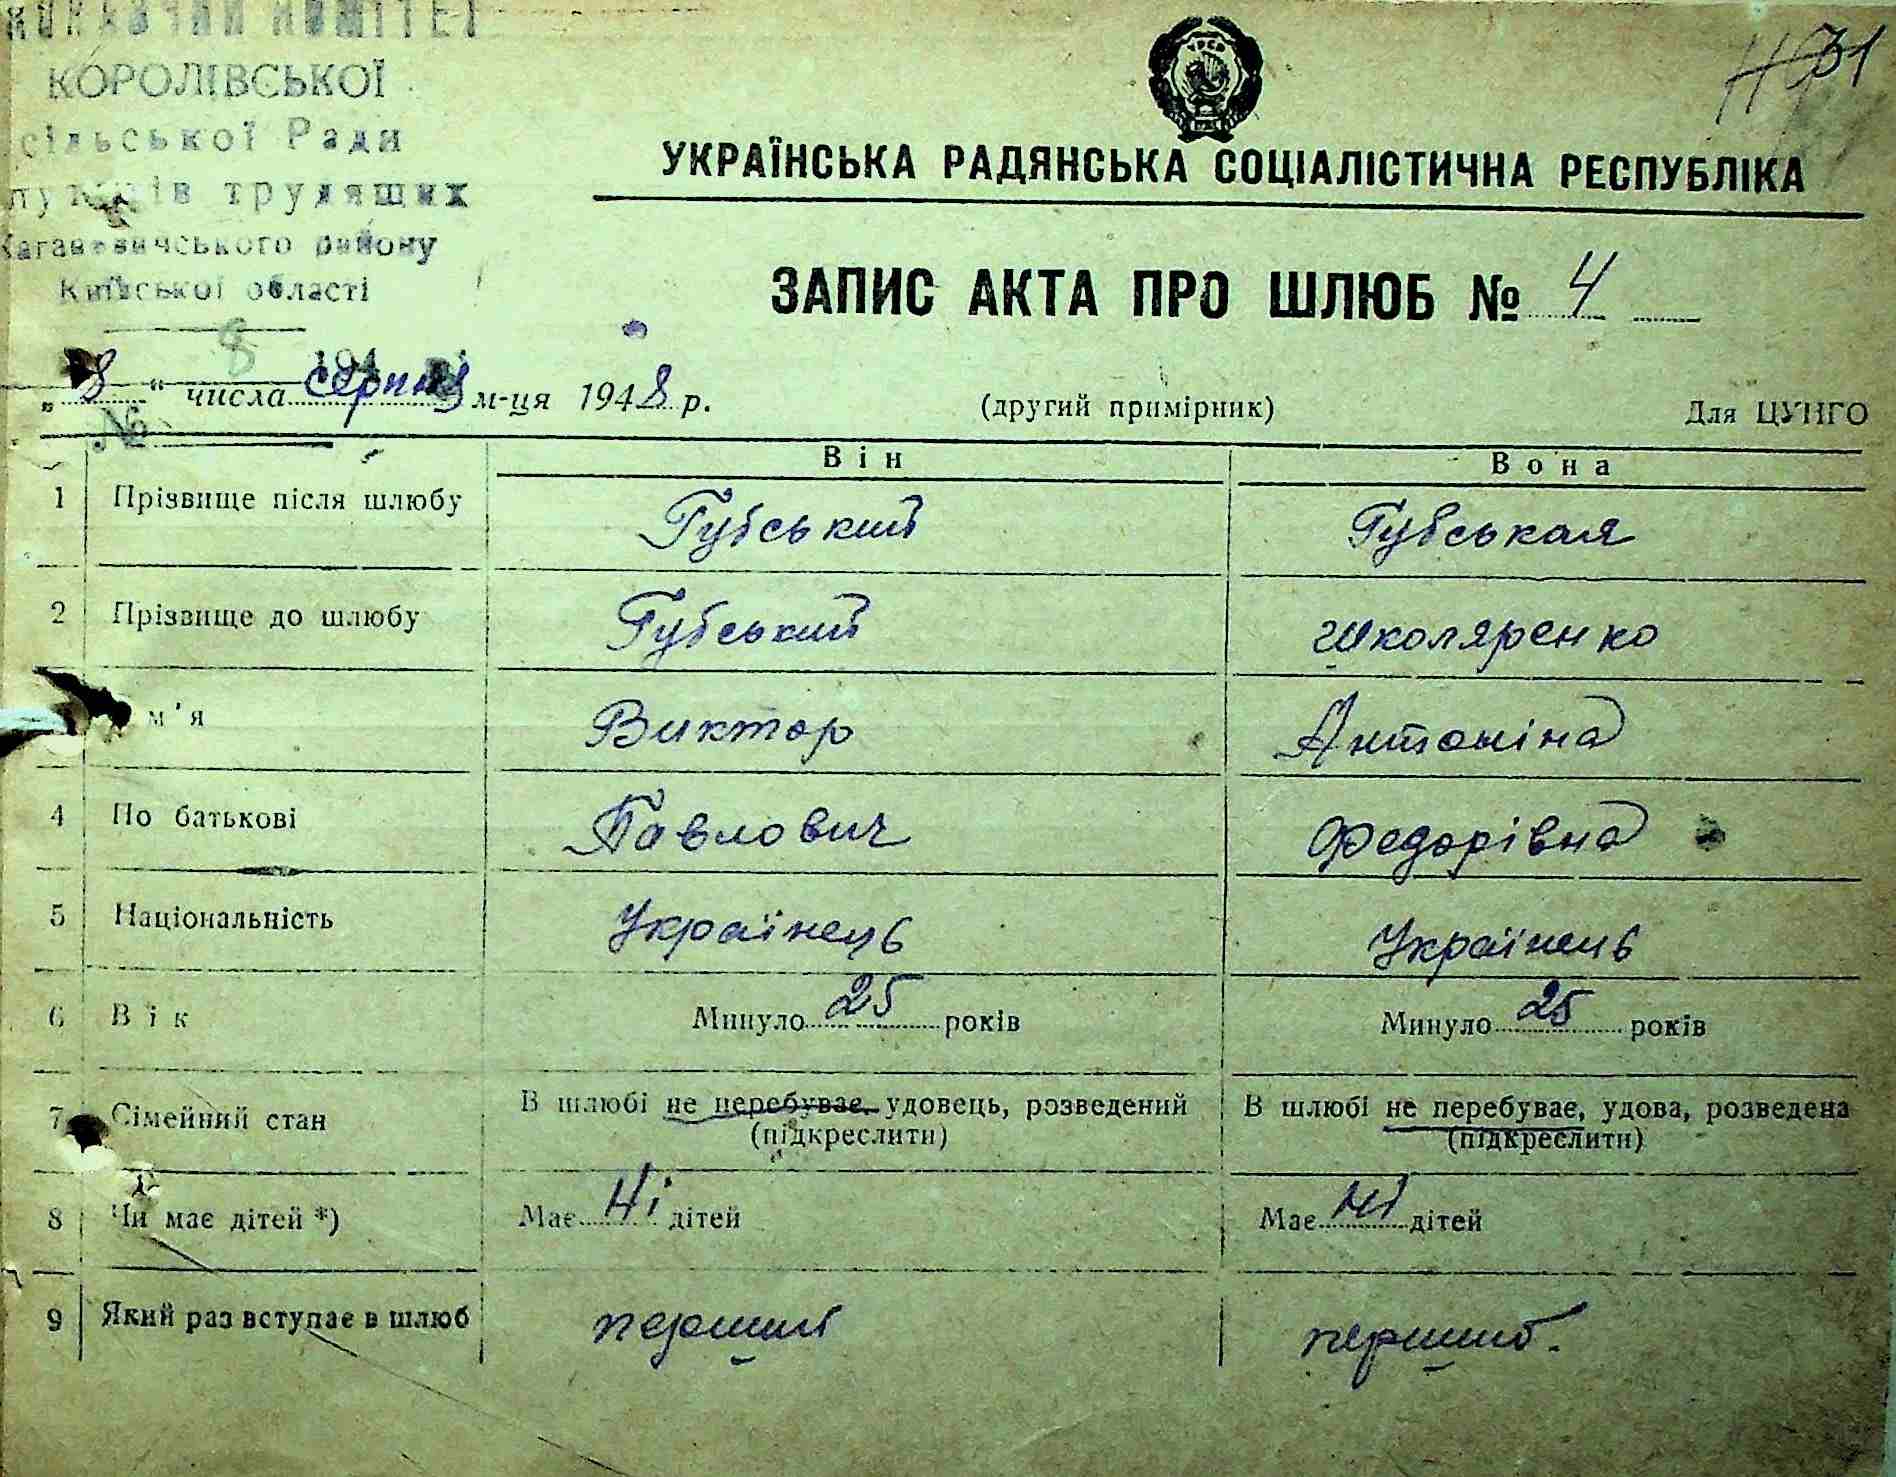 КОМІТЕТ
КОРОЛІВСЬКОЇ
сільської Ради
трудящих
Кагановичського району
Київської області
31
УКРАЇНСЬКА РАДЯНСЬКА СОЦІАЛІСТИЧНА РЕСПУБЛІКА
ЗАПИС АКТА ПРО ШЛЮБ № 4
„8“ числа серпня м-ця 1948 р.
(другий примірник)
Для ЦУНГО
№
Він
Вона
1 Прізвище після шлюбу Губський Губськая
2 Прізвище до шлюбу Губський Школяренко
м'я Виктор Антоніна
4 По батькові Павлович Федорівна
5 Національність Українець Українець
6 Вік Минуло 25 років Минуло 25 років
7 Сімейний стан В шлюбі не перебуває, удовець, розведений В шлюбі не перебуває, удова, розведена
(підкреслити) (підкреслити)
8 Чи має дітей *) Має Ні дітей Має Ні дітей
9 Який раз вступає в шлюб перший перший.